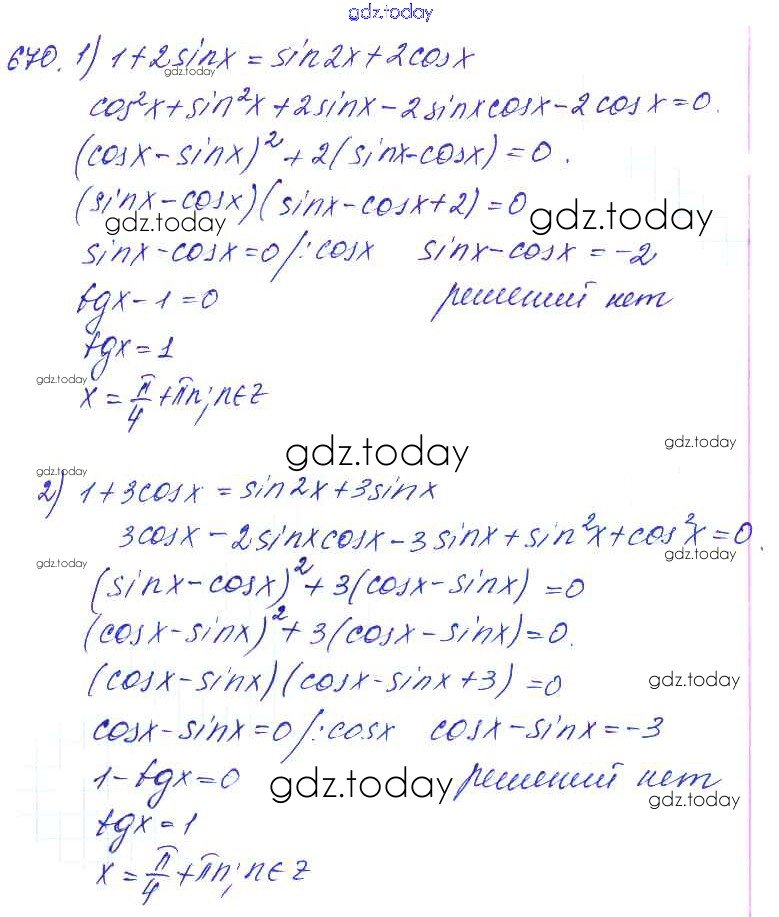 gdz.today
670. 1) 1+2sinx = sin2x+2cosx
gdz.today
cos²x+sin²x+2sinx-2sinxcosx-2cosx=0.
(cosx-sinx)²+2(sinx-cosx)=0.
(sinx-cosx)(sinx-cosx+2)=0
gdz.today gdz.today
sinx-cosx=0/:cosx sinx-cosx=-2
tgx-1=0 решений нет
tgx=1
gdz.today
x=π/4+πn; n∈z
gdz.today
gdz.today
gdz.today
2) 1+3cosx = sin2x+3sinx
3cosx-2sinxcosx-3sinx+sin²x+cos²x=0.
gdz.today
gdz.today
(sinx-cosx)²+3(cosx-sinx)=0
(cosx-sinx)²+3(cosx-sinx)=0.
(cosx-sinx)(cosx-sinx+3)=0
gdz.today
cosx-sinx=0/:cosx cosx-sinx=-3
1-tgx=0 gdz.today решений нет
gdz.today
tgx=1
x=π/4+πn; n∈z